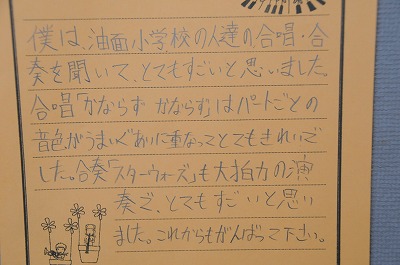 僕は、油面小学校の人達の、合唱・合
奏を聞いて、とてもすごいと思いました。
合唱「かならず かならず」はパートごとの
音色がうまいぐあいに重なってとてもきれいで
した。合奏「スターウォーズ」も大拍力の演
奏で、とてもすごいと思い
ました。これからもがんばって下さい。